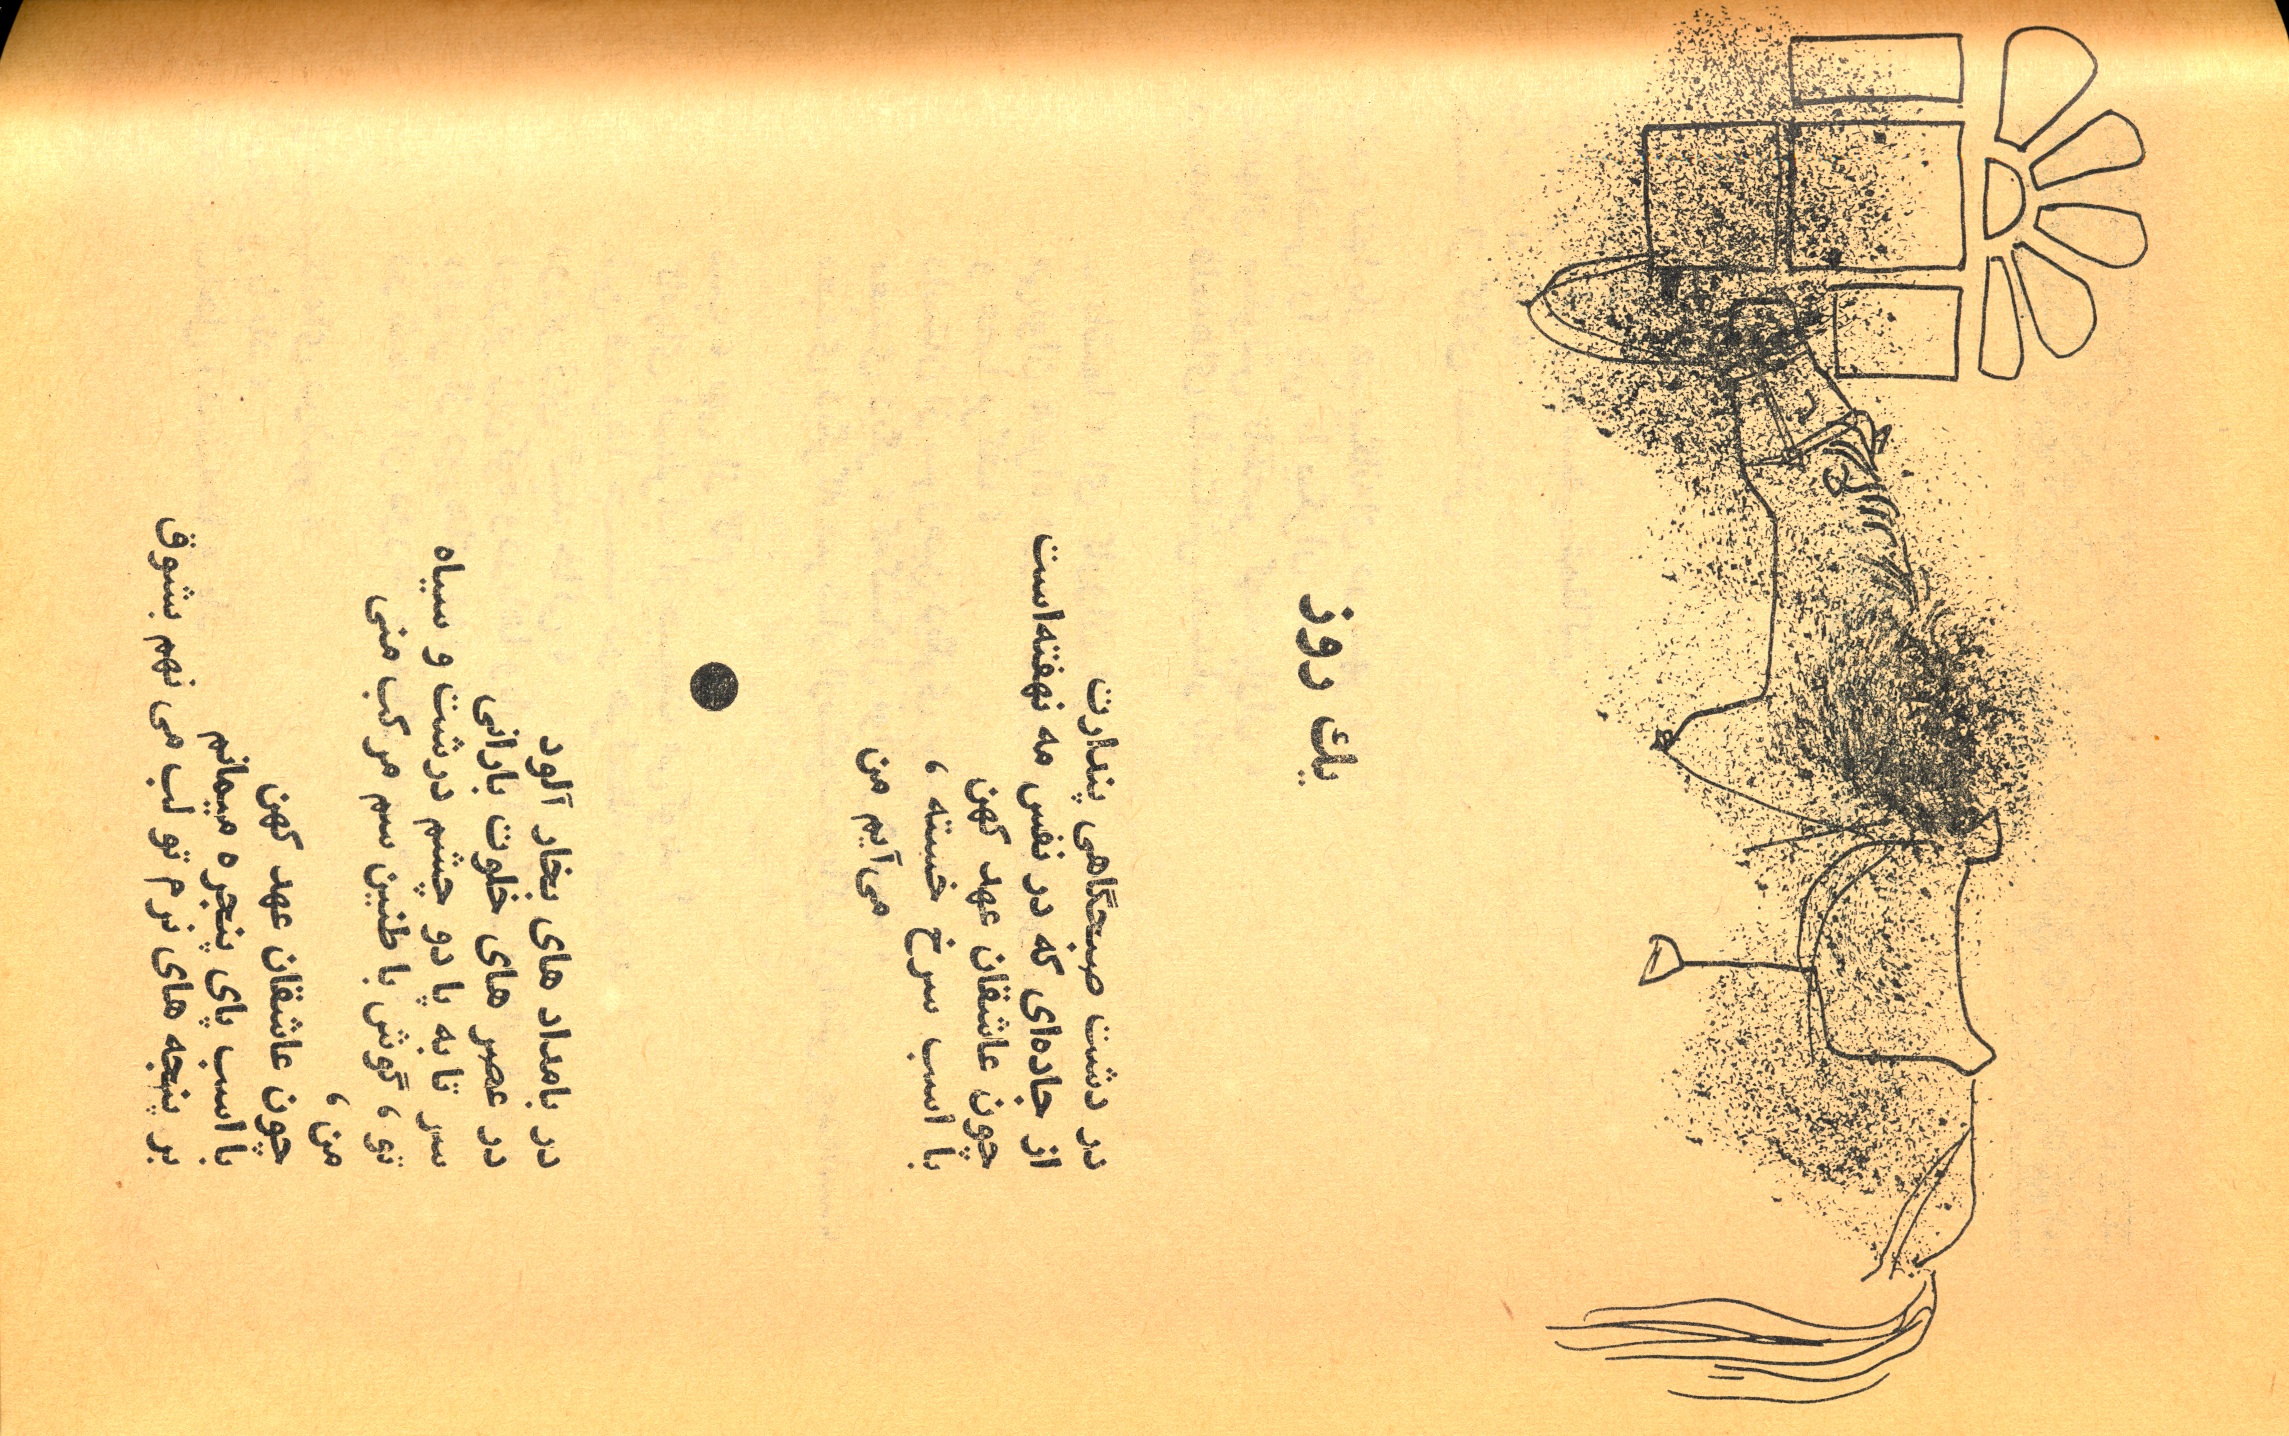 يك روز
در دشت صبحگاهی پندارت
از جاده‌ای که در نفس مه نهفته‌است
چون عاشقان عهد کهن
با اسب سرخ خسته ،
می‌آیم من
در بامداد های بخار آلود
در عصر های خلوت بارانی
سر تا به پا دو چشم درشت و سیاه
تو ، گوش با طنین سم مرکب منی
من ،
چون عاشقان عهد کهن
با اسب پای پنجره میمانم
بر پنجه های نرم تو لب می نهم بشوق